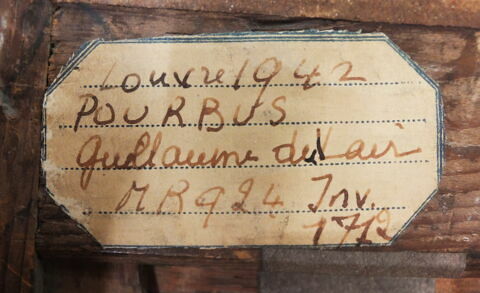 Louvre 1942
POURBUS
Guillaume du Vair
MR 924 Inv.
1712